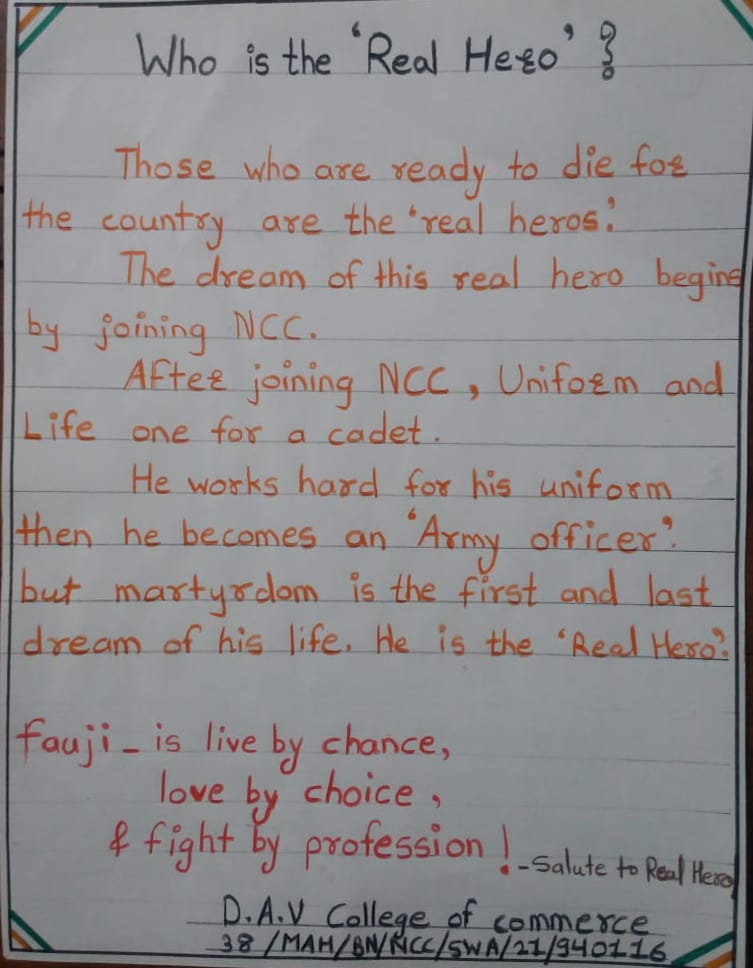 Who is the 'Real Hero' ?
Those who are ready to die for
the country are the 'real heros'.
The dream of this real hero begins
by joining NCC.
After joining NCC, Uniform and
Life one for a cadet.
He works hard for his uniform
then he becomes an 'Army officer'.
but martyrdom is the first and last
dream of his life. He is the 'Real Hero'.
fauji - is live by chance,
love by choice,
& fight by profession !
- Salute to Real Hero
D.A.V College of commerce
38/MAH/BN/NCC/SWA/21/940116